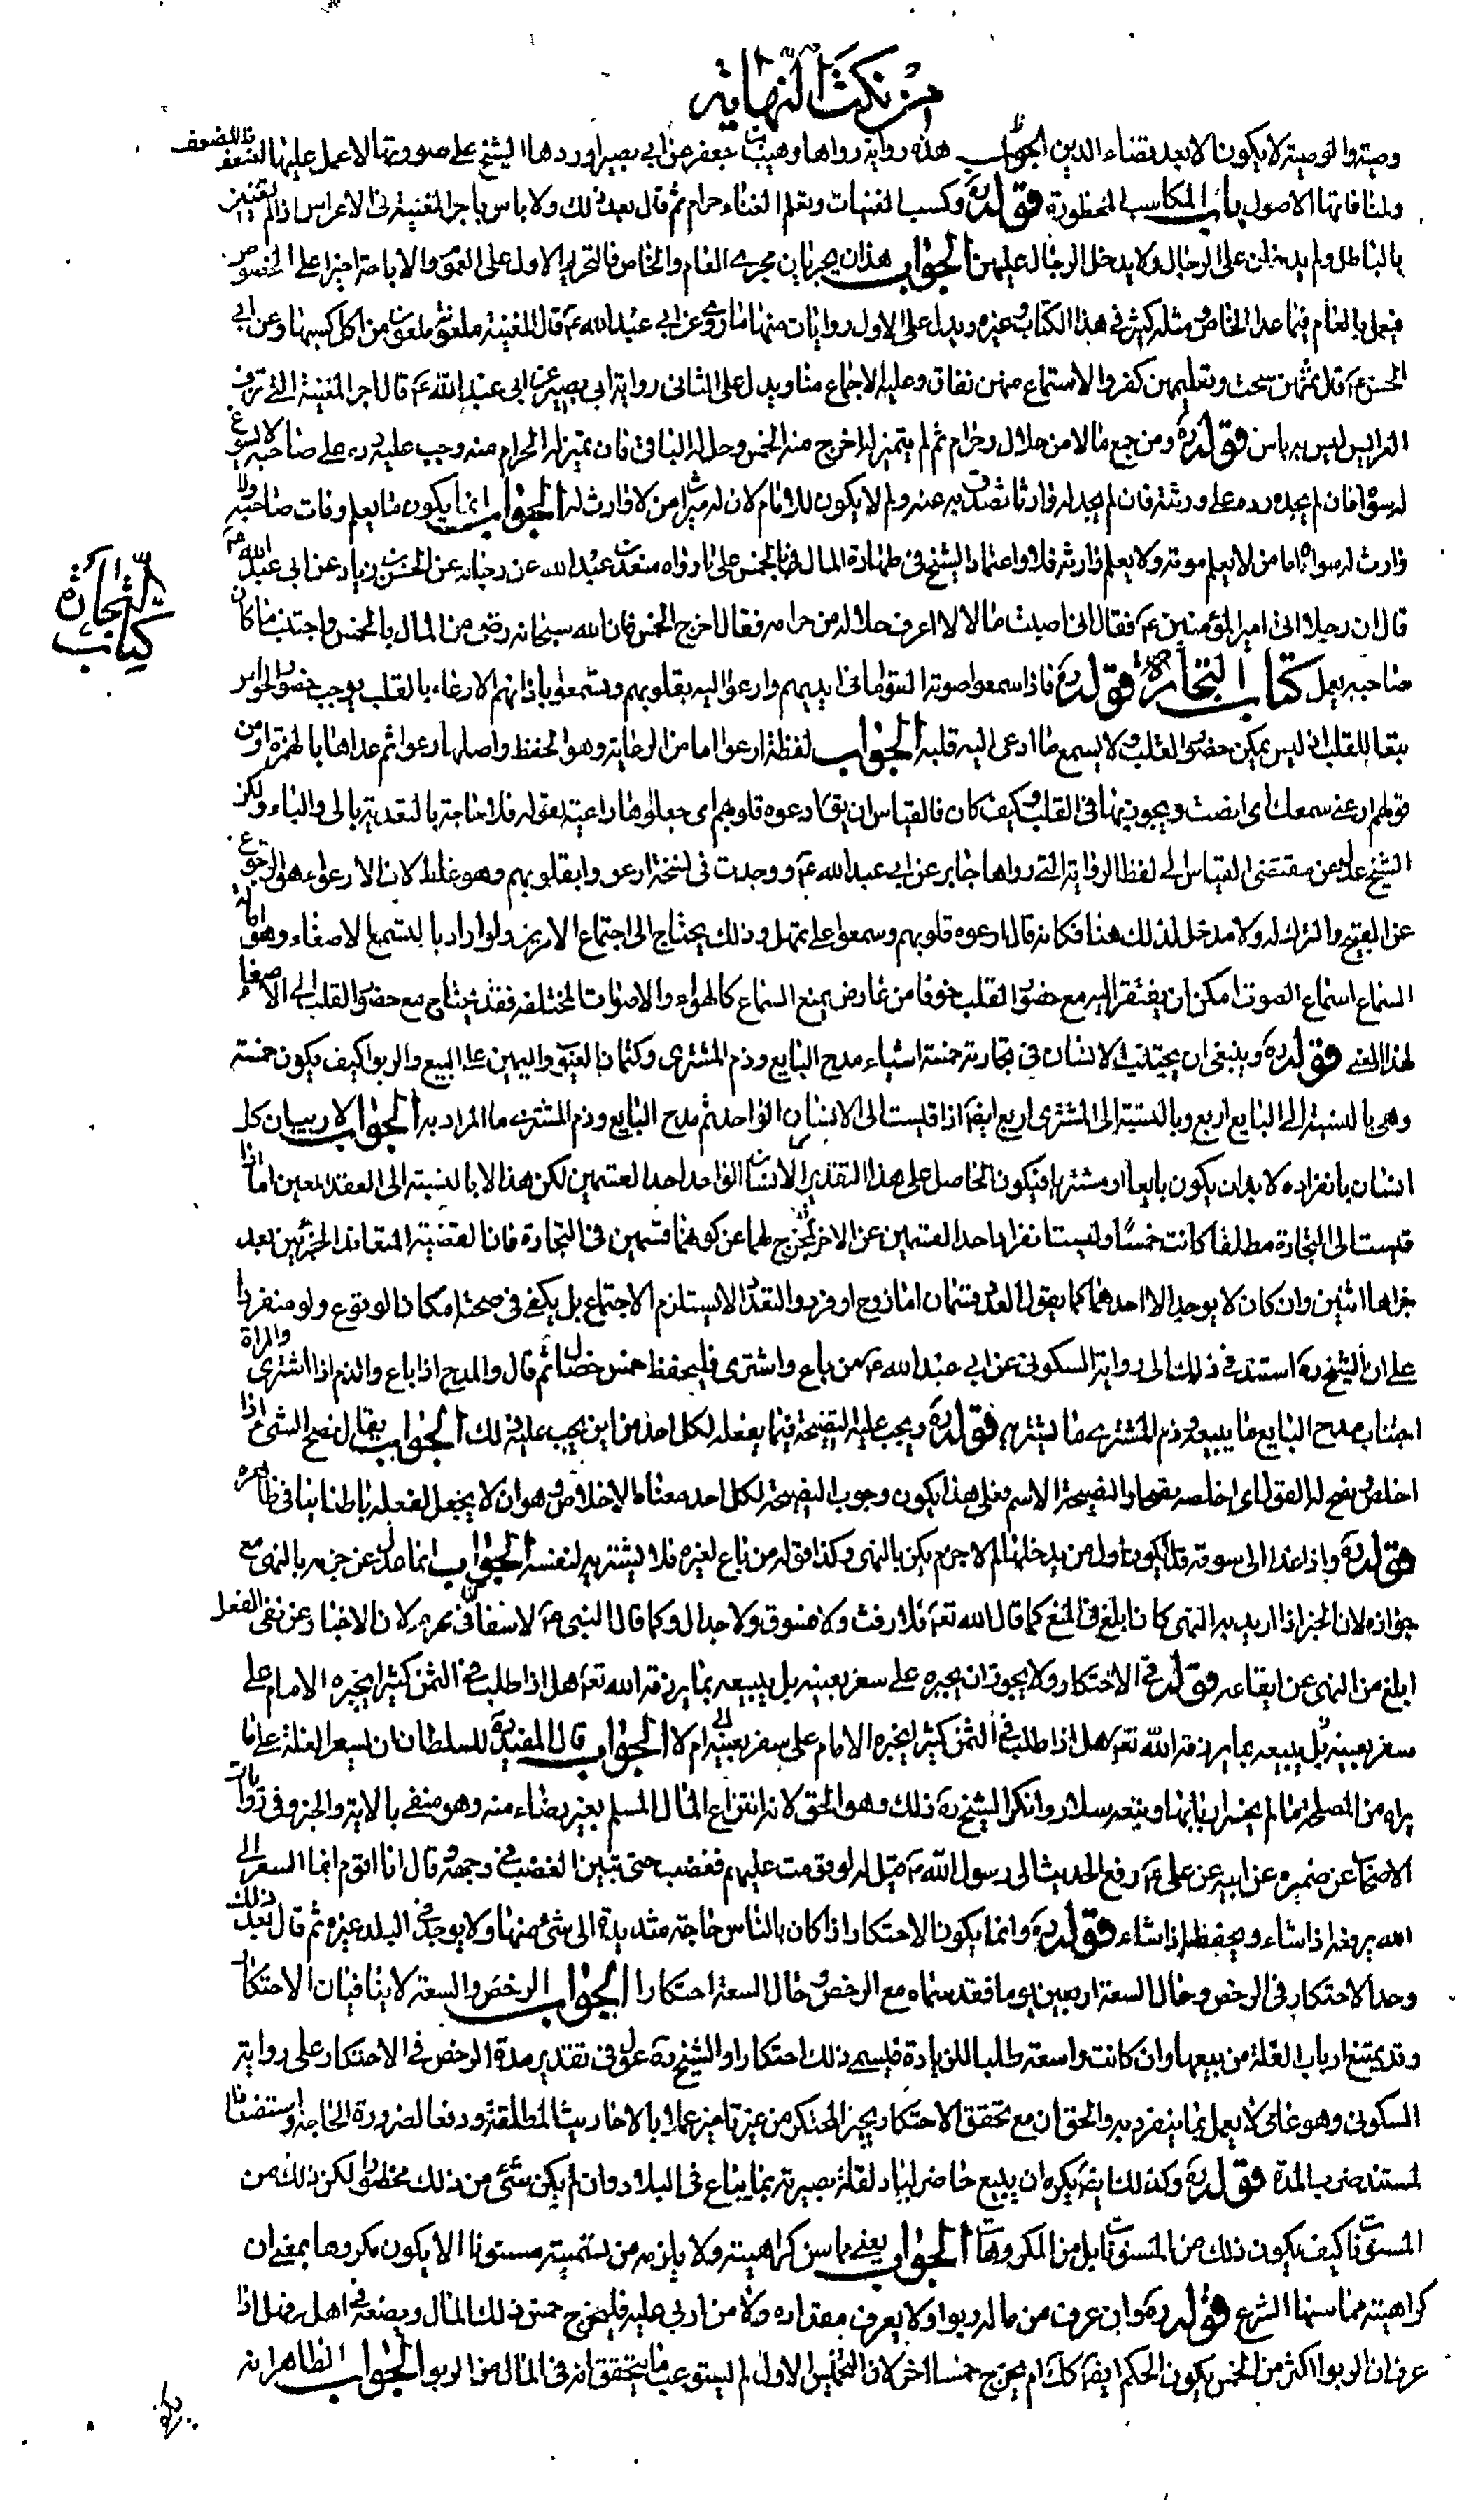 من نكت النهاية
وصية والوصية لا يكون الا بعد قضاء الدين الجواب هذه رواية رواها وهيب بن جعفر عن ابي بصير اوردها الشيخ على صورتها لا عمل عليها لضعف
ولمنافاتها الاصول باب المكاسب المحظورة قوله ره وكسب المغنيات وتعلم الغناء حرام ثم قال بعد ذلك ولا باس باجر المغنية في الاعراس اذا لم يغنين
بالباطل ولم يدخلن على الرجال ولا يدخل الرجال عليهن الجواب هذان يجريان مجرى العام والخاص فالتحريم الاول على العموم والاباحة اخيرا على الخصوص
فيعمل بالعام فيما عدا الخاص ومثله كثير في هذا الكتاب وغيره ويدل على الاول روايات منها ما روي عن ابي عبد الله ع قال المغنية ملعونة ملعون من اكل كسبها وعن ابي
الحسن ع قال ثمنهن سحت وتعليمهن كفر والاستماع منهن نفاق وعليه الاجماع منا ويدل على الثاني رواية ابي بصير عن ابي عبد الله ع قال اجر المغنية التي تزف
العرايس ليس به باس قوله ره ومن جمع مالا من حلال وحرام ثم لم يتميز له اخرج منه الخمس وحل له الباقي فان تميز له الحرام منه وجب عليه رده على صاحبه لا يسوغ
له سواه فان لم يجده رده على ورثته فان لم يجد له وارثا تصدق به عنه ولم لا يكون للامام لان له ميراث من لا وارث له الجواب انما يكون ما يعلم وفات صاحبه ولا
وارث له سواه اما من لا يعلم موته ولا يعلم وارثه فلا واعتماد الشيخ في طهارة المال بالخمس على ما رواه سعد بن عبد الله عن رجاله عن الحسن بن زياد عن ابي عبد الله ع
قال ان رجلا اتى امير المؤمنين ع فقال اني اصبت مالا لا اعرف حلاله من حرامه فقال اخرج الخمس فان الله سبحانه رضى من المال بالخمس واجتنب ما كان
صاحبه يعمل كتاب التجارة قوله ره فاذا سمعوا صوته القوا ما في ايديهم وارعوا اليه بقلوبهم وسمعوا باذانهم الارعاء بالقلب يوجب حضور الحواس
تبعا للقلب اذ ليس يمكن حضور القلب ولا يسمع ما ادعى اليه قلبه الجواب لفظة ارعوا اما من الرعاية وهو الحفظ واصلها رعوا ثم عداها بالهمزة او من
قولهم ارعني سمعك اي انصت ويجوز بها في القلب وكيف كان فالقياس ان يق ارعوه قلوبهم اي جعلوها راعية لقوله فلا حاجة بالتعدية بالى والباء ولكن
الشيخ عدل عن مقتضى القياس الى لفظ الرواية التي رواها جابر عن ابي عبد الله ع ووجدت في نسخة ارعووا بقلوبهم وهو غلط لان الارعواء هو الرجوع
عن القبيح والترك له ولا مدخل لذلك هنا فكانه قال ارعوه قلوبهم وسمعوا على تمهل وذلك يحتاج الى اجتماع الامرين ولو اراد بالسمع الاصغاء وهو امالة
السماع استماع الصوت امكن ان يفتقر اليه مع حضور القلب خوفا من عارض يمنع السماع كالهواء والاصوات المختلفة فقد يحتاج مع حضور القلب الى الاصغاء
لهذا المعنى قوله ره وينبغي ان يجتنب الانسان في تجارته خمسة اشياء مدح البايع وذم المشتري وكتمان العيوب واليمين على البيع والربوا كيف يكون خمسة
وهي بالنسبة الى البايع اربع وبالنسبة الى المشتري اربع ايضا اذا قيست الى الانسان الواحد ثم مدح البايع وذم المشتري ما المراد به الجواب لا ريب ان كل
انسان بانفراده لا بد ان يكون بايعا او مشتريا فيكون الحاصل على هذا التقدير الانسان الواحد احد القسمين لكن هذا لا بالنسبة الى العقد المعين اما اذا
قيست الى التجارة مطلقا كانت خمسا وليست انفراد احد القسمين عن الاخر بمخرج لهما عن كونهما قسمين في التجارة فان القضية المتعاند الجزئين يعد
جزاها اثنين وان كان لا يوجد الا احدهما كما يقول العدد قسمان اما زوج او فرد والتعدد لا يستلزم الاجتماع بل يكفي في صحته امكان الوقوع ولو منفردا
على ان الشيخ ره استند في ذلك الى رواية السكوني عن ابي عبد الله ع من باع واشترى فليحفظ خمس خصال ثم قال والمدح اذا باع والذم اذا اشترى والمراد
اجتناب مدح البايع ما يبيعه وذم المشتري ما يشتريه قوله ره ويجب عليه النصيحة فيما يفعله لكل احد من اين يجب عليه ذلك الجواب يقال نصح الشيء اذا
اخلص ونصح له القول اي اخلصه نصحا والنصيحة الاسم فعلى هذا يكون وجوب النصيحة لكل احد معناه الاخلاص وهو ان لا يجعل لفعله باطنا ينافي ظاهره
قوله ره واذا غدا الى سوقه فلا يكون اول من يدخلها لم لا جزم يكن بالنهي وكذا قوله من باع لغيره فلا يشتريه لنفسه الجواب انما عدل عن جزمه بالنهي مع
جوازه لان الخبر اذا اريد به النهي كان ابلغ في المنع كما قال الله تع فلا رفث ولا فسوق ولا جدال وكما قال النبي ص لا سفاق في محرم لان الاخبار عن نفي الفعل
ابلغ من النهي عن ايقاعه قوله في الاحتكار ولا يجوز ان يجبره على سعر بعينه بل يبيعه بما يرزقه الله تع هل اذا طلب في الثمن كثيرا يجبره الامام على
سعر بعينه بل يبيعه بما يرزقه الله تع هل اذا طلب في الثمن كثيرا يجبره الامام على سعر بعينه ام لا الجواب قال المفيد ره للسلطان ان يسعر الغلة على ما
يراه من المصلحة ما لم يخسر اربابها وتبعه سلار وانكر الشيخ ره ذلك وهو الحق لانه انتزاع المال المسلم بغير رضاء منه وهو منفي بالاية والخبر وفي روايات
الاصحاب عن ضمرة عن ابيه عن علي ع رفع الحديث الى رسول الله ص قيل له لو قومت عليهم فغضب حتى تبين الغضب في وجهه وقال انا اقوم انما السعر الى
الله يرفعه اذا شاء ويحفظه اذا شاء قوله ره وانما يكون الاحتكار اذا كان بالناس حاجة شديدة الى شيء منها ولا يوجد في البلد غيره ثم قال بعد ذلك
وحد الاحتكار في الرخص وحال السعة اربعين يوما فقد سماه مع الرخص وحال السعة احتكارا الجواب الرخص والسعة لا ينافيان الاحتكار
وقد يمتنع ارباب الغلة من بيعها وان كانت واسعة طلبا للزيادة فليسم ذلك احتكارا والشيخ ره عول في تقدير مدة الرخص في الاحتكار على رواية
السكوني وهو عامي لا يعمل بما ينفرد به والحق ان مع تحقق الاحتكار يجبر المحتكر من غير تاخير عملا بالاحاديث المطلقة ودفعا لضرورة الحاجة واستضعافا
لمستند ضرب المدة قوله ره وكذلك ايضا يكره ان يبيع حاضر لباد لقلة بصيرته بما يباع في البلاد وان لم يكن شيء من ذلك محظورا لكن ذلك من
المسنونات كيف يكون ذلك من المسنونات بل من المكروهات الجواب يعني ما سن كراهيته ولا يلزم من تسميته مسنونا الا يكون مكروها بمعنى ان
كراهيته مما سنها الشرع قوله ره وان عرف من ماله ربوا ولا يعرف مقداره ولا من اربى عليه فليخرج خمس ذلك المال ويضعه في اهله فهل اذا
عرف ان الربوا اكثر من الخمس يكون الحكم ايضا كذلك ام يخرج خمسا اخر لان التخميس الاول لم يستوعب ما يتحقق انه في المال من الربوا الجواب الظاهر انه
كتاب التجارة